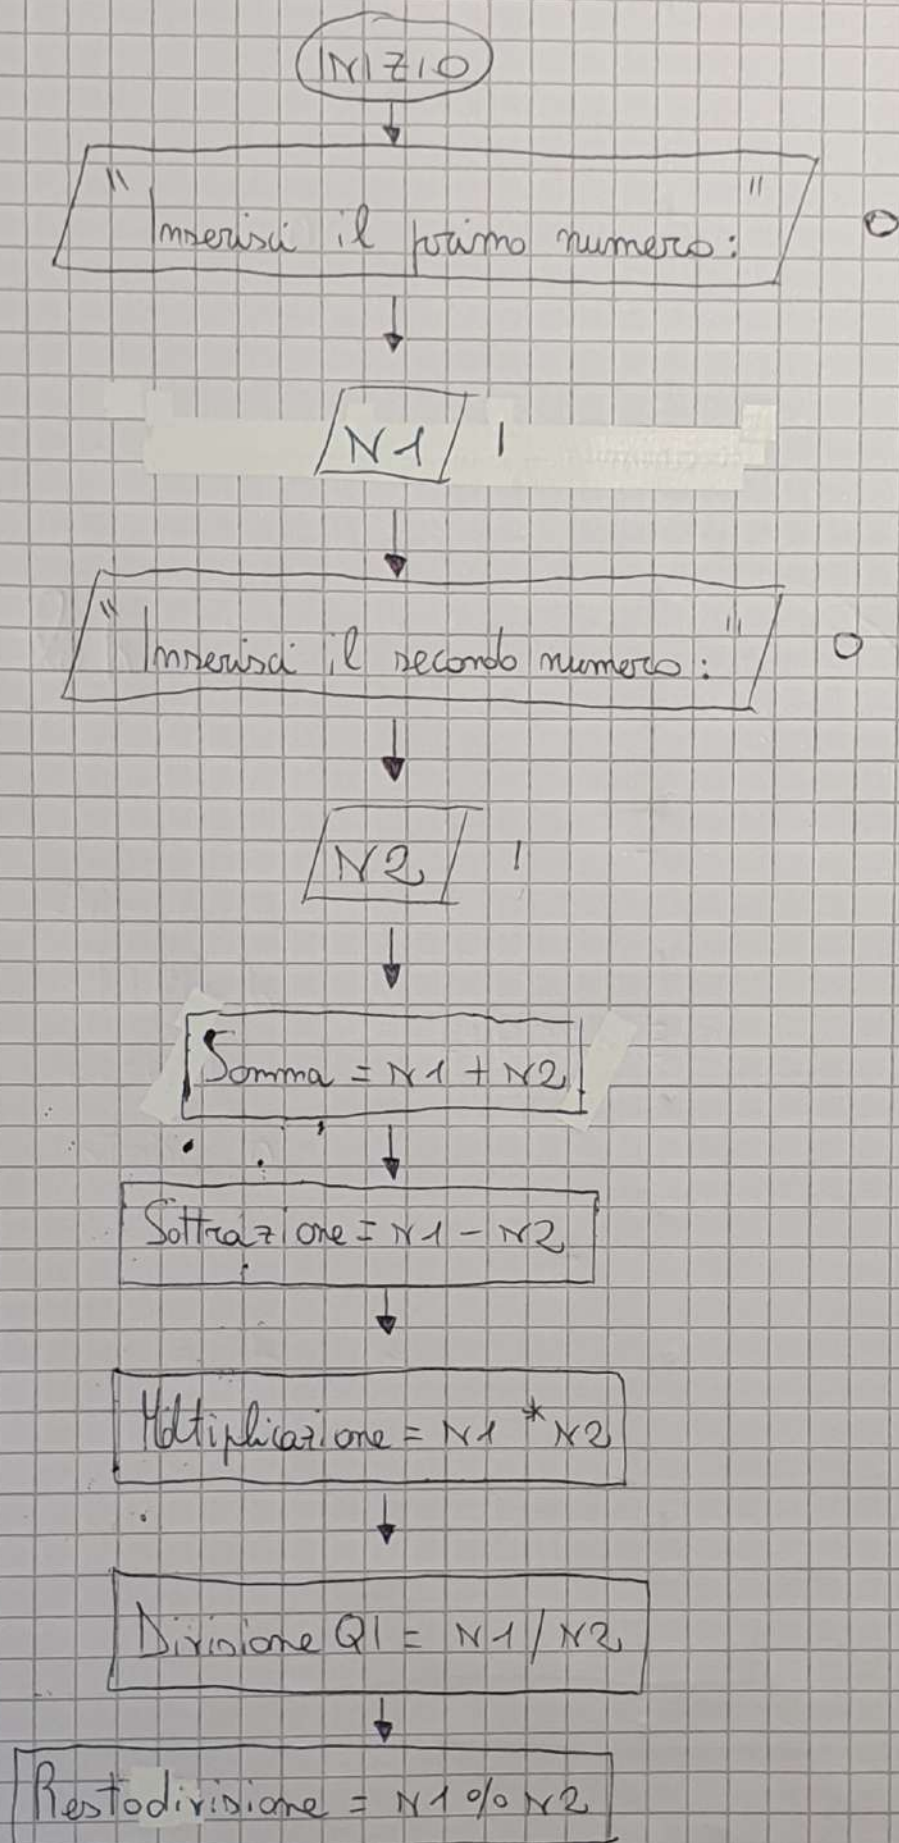 INIZIO
" Inserisci il primo numero: " O
N1 I
" Inserisci il secondo numero: " O
N2 I
Somma = N1 + N2
Sottrazione = N1 - N2
Moltiplicazione = N1 * N2
Divisione QI = N1 / N2
Restodivisione = N1 % N2